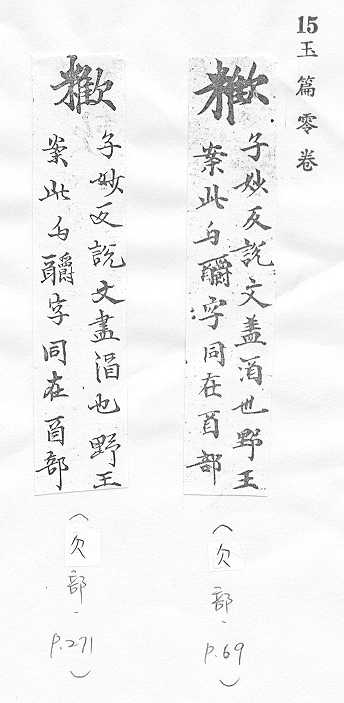 15 玉篇零卷
子妙反說文盖酒也野王
案此与釂字同在酉部
(欠部, p.69)
子妙反說文盡酒也野王
案此与釂字同在酉部
(欠部, p.271)